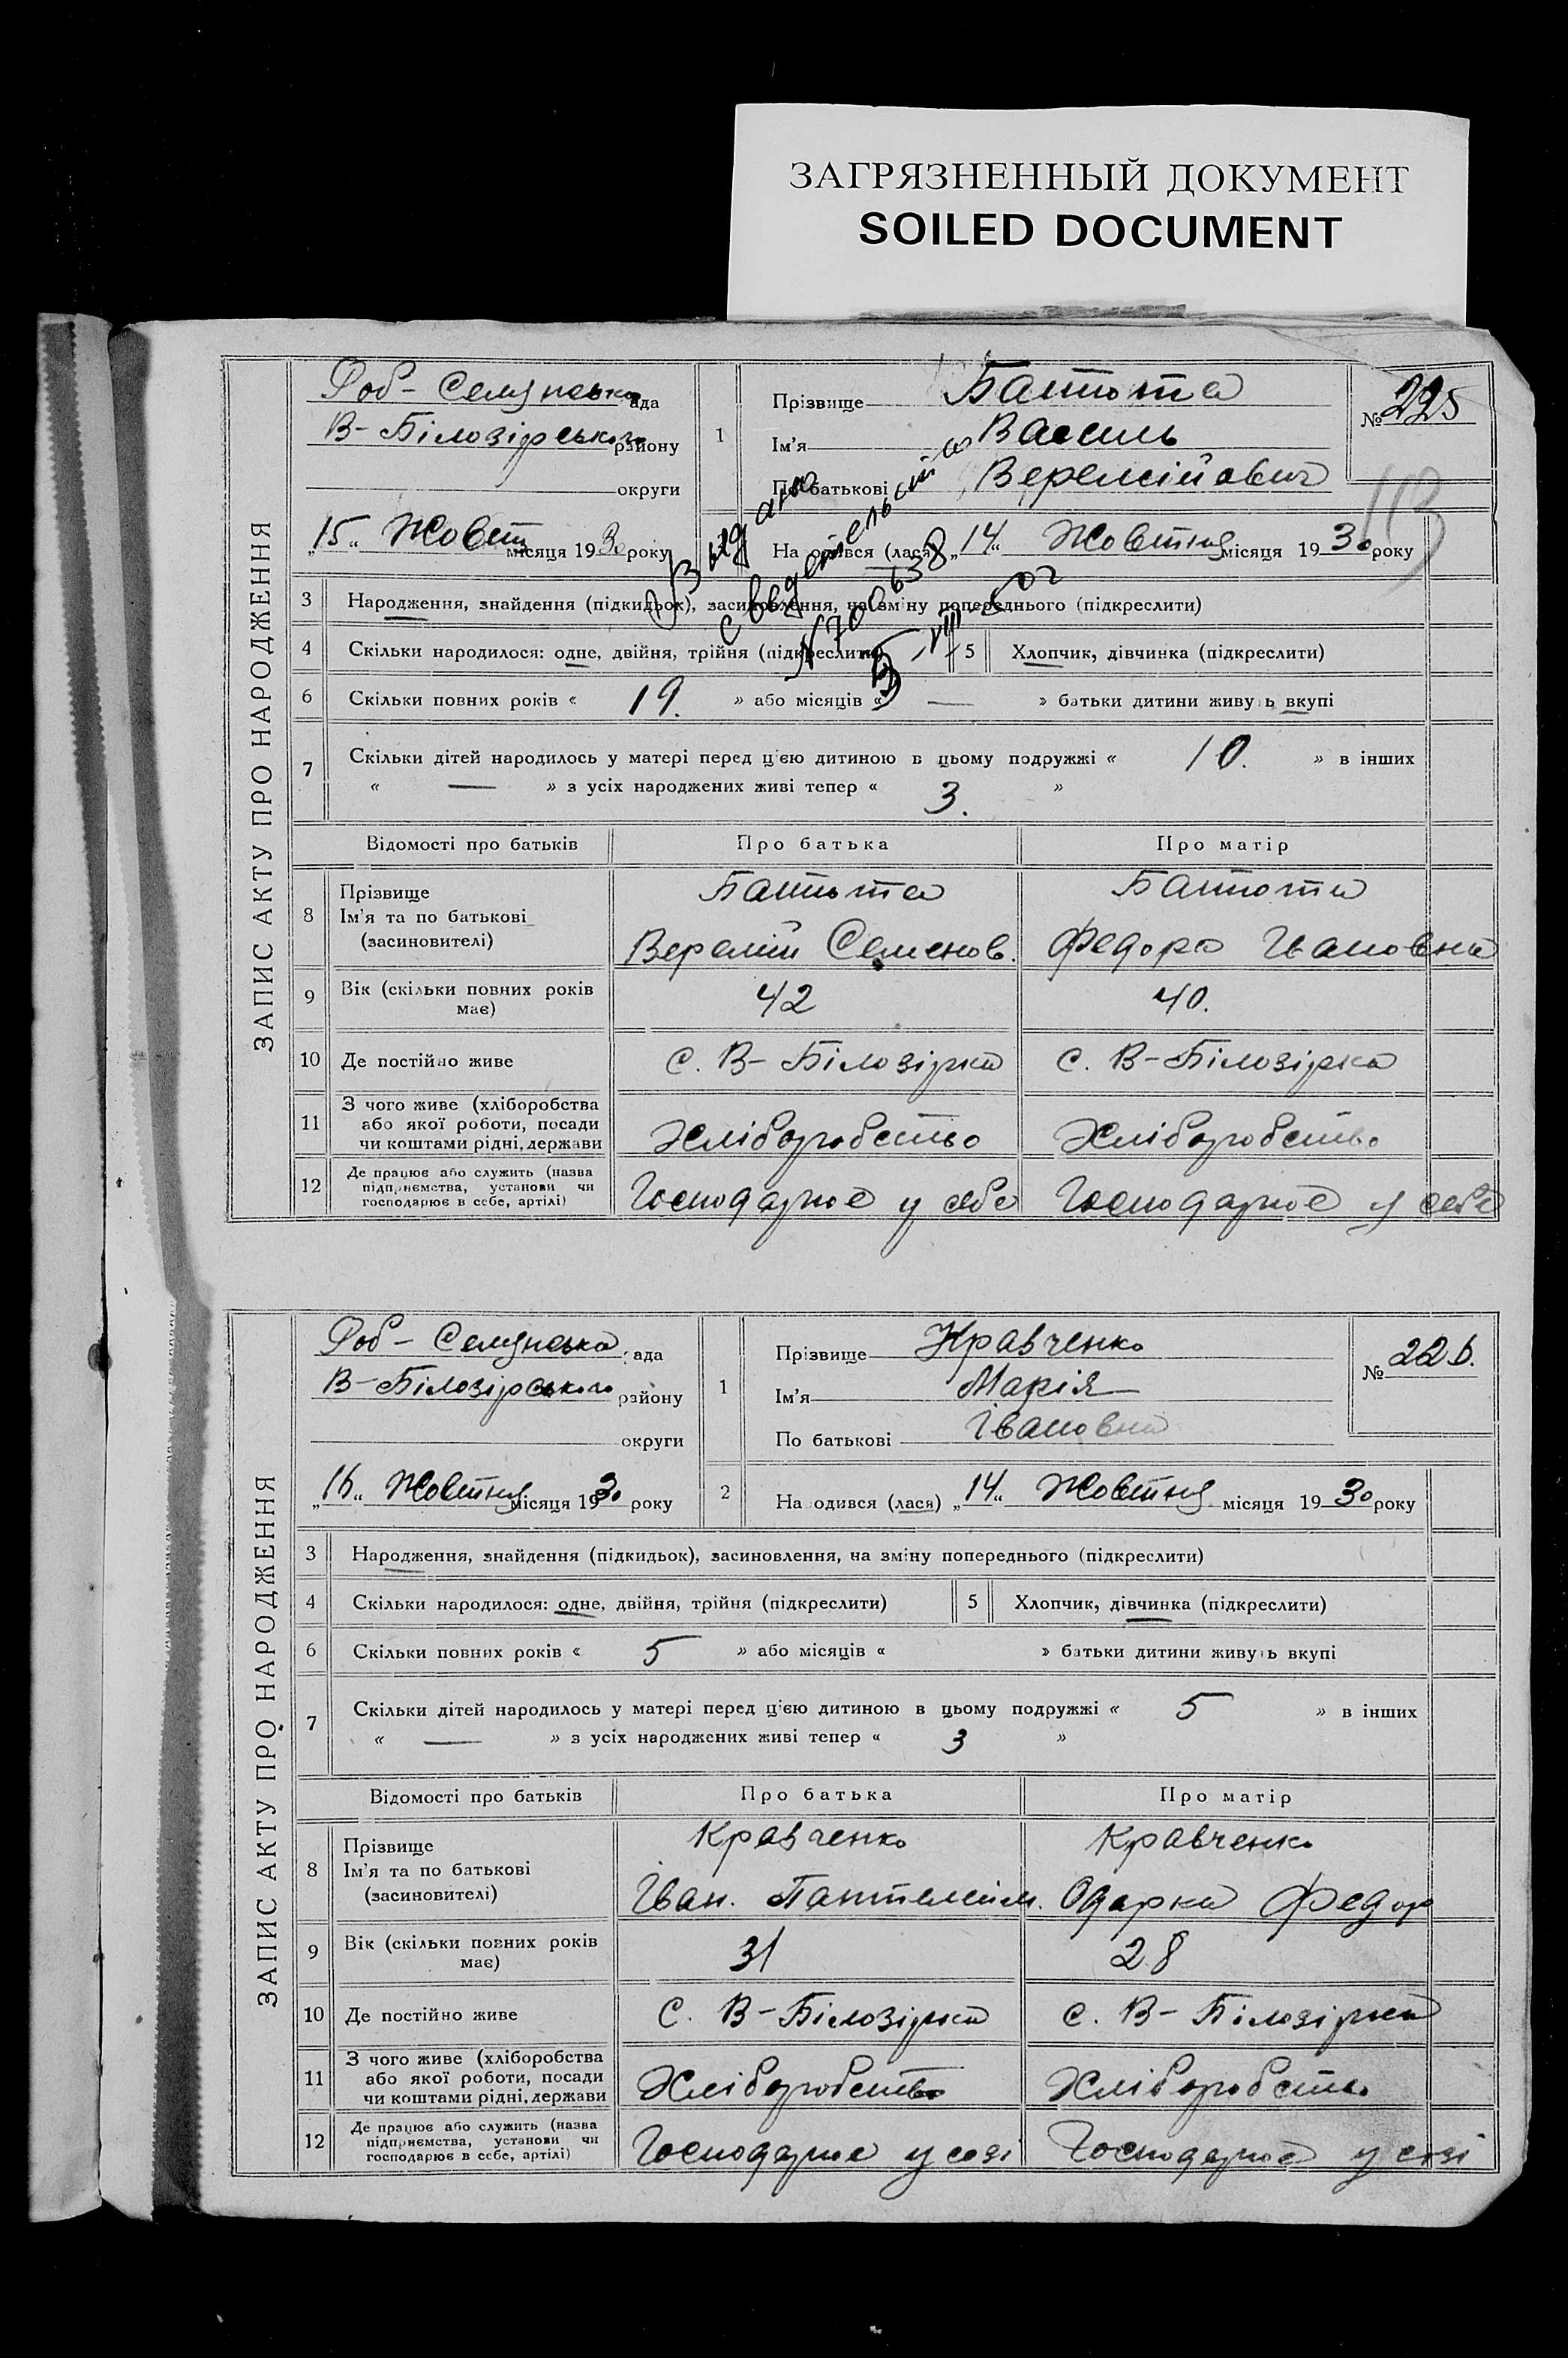 ЗАГРЯЗНЕННЫЙ ДОКУМЕНТ
SOILED DOCUMENT
ЗАПИС АКТУ ПРО НАРОДЖЕННЯ
Роб-Селянська рада
В-Білозірського району
округи
„15“ Жовтн місяця 1930 року
1
Прізвище Баштота
Ім'я Василь
По батькові Веремійович
№ 225
113
На одився (лася) „14“ Жовтня місяця 1930 року
Выдано
сведетельство
N 700638
5-VIII-50г
3 Народження, знайдення (підкидьок), засиновлення, на зміну попереднього (підкреслити)
4 Скільки народилося: одне, двійня, трійня (підкреслити) 5 Хлопчик, дівчинка (підкреслити)
6 Скільки повних років « 19. » або місяців « — » батьки дитини живуть вкупі
7 Скільки дітей народилось у матері перед цією дитиною в цьому подружжі « 10. » в інших
« — » з усіх народжених живі тепер « 3. »
Відомості про батьків Про батька Про матір
8 Прізвище Баштота Баштота
Ім'я та по батькові
(засиновителі) Веремій Семенов. Федора Івановна
9 Вік (скільки повних років має) 42 40.
10 Де постійно живе с. В-Білозірка с. В-Білозірка
11 З чого живе (хліборобства
або якої роботи, посади
чи коштами рідні, держави Хліборобство Хліборобство
12 Де працює або служить (назва
підприємства, установи чи
господарює в себе, артілі) Господарює у себе Господарює у себе
ЗАПИС АКТУ ПРО НАРОДЖЕННЯ
Роб-Селянська рада
В-Білозірського району
округи
„16“ Жовтня місяця 1930 року
1
Прізвище Кравченко
Ім'я Марія
По батькові Івановна
№ 226.
2 На одився (лася) „14“ Жовтня місяця 1930 року
3 Народження, знайдення (підкидьок), засиновлення, на зміну попереднього (підкреслити)
4 Скільки народилося: одне, двійня, трійня (підкреслити) 5 Хлопчик, дівчинка (підкреслити)
6 Скільки повних років « 5 » або місяців « » батьки дитини живуть вкупі
7 Скільки дітей народилось у матері перед цією дитиною в цьому подружжі « 5 » в інших
« — » з усіх народжених живі тепер « 3 »
Відомості про батьків Про батька Про матір
8 Прізвище Кравченко Кравченко
Ім'я та по батькові
(засиновителі) Іван. Пантелейм. Одарка Федор
9 Вік (скільки повних років має) 31 28
10 Де постійно живе С. В-Білозірка с. В-Білозірка
11 З чого живе (хліборобства
або якої роботи, посади
чи коштами рідні, держави Хліборобство Хліборобство
12 Де працює або служить (назва
підприємства, установи чи
господарює в себе, артілі) Господарює у созі Господарює у созі